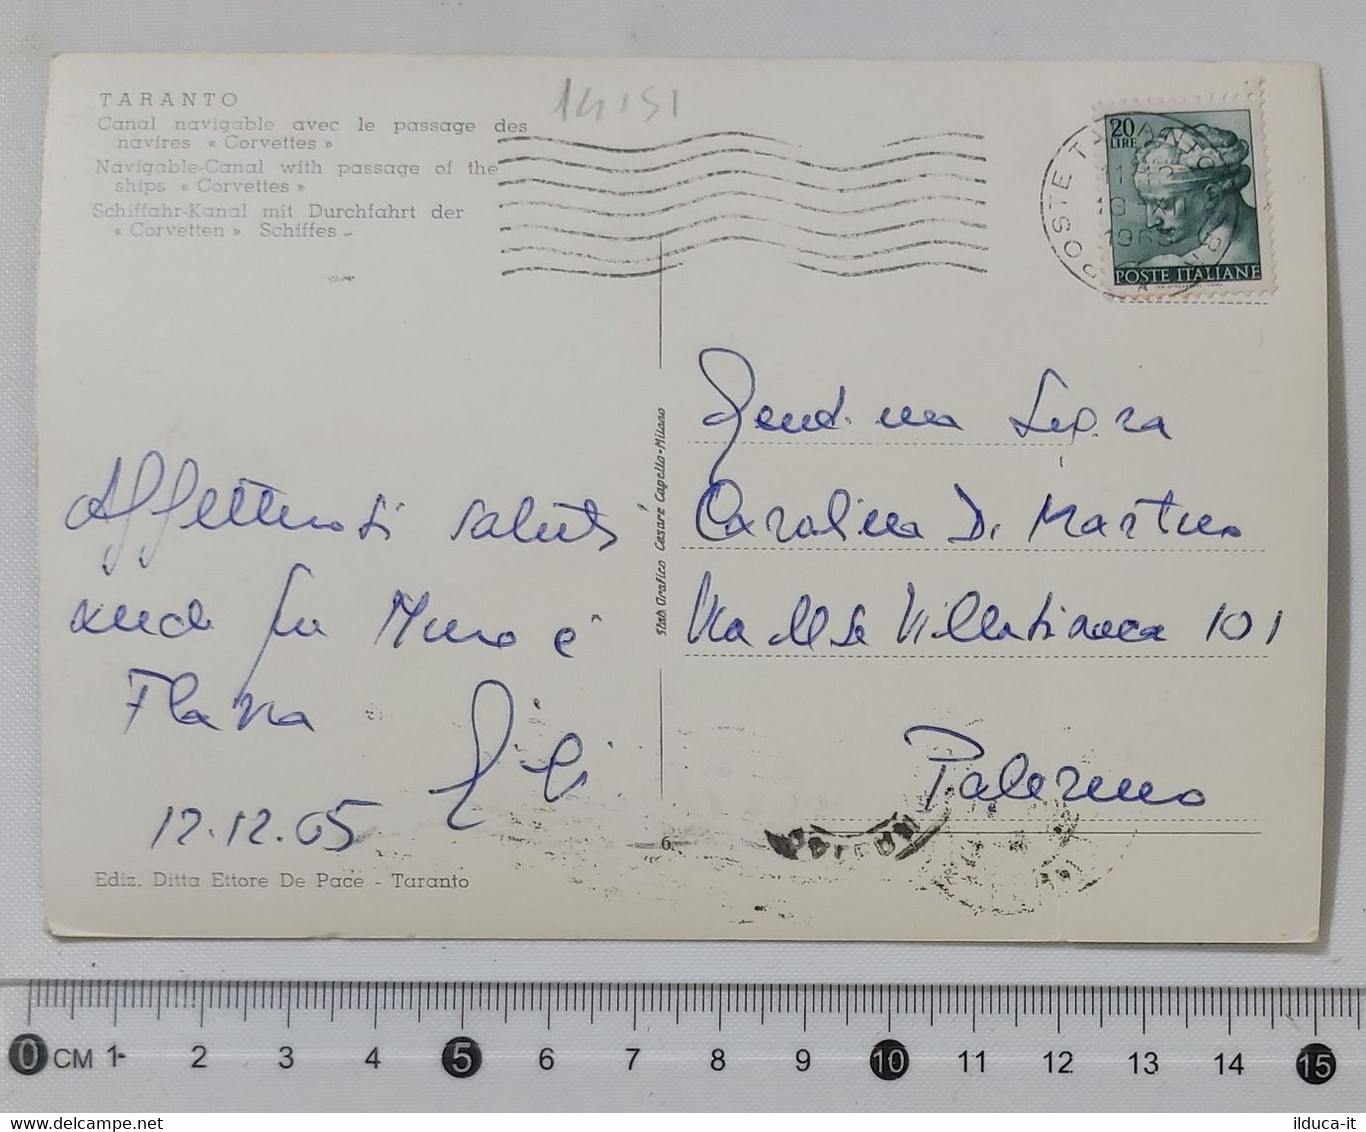 TARANTO
Canal navigable avec le passage des
navires « Corvettes »
Navigable-Canal with passage of the
ships « Corvettes »
Schiffahr-Kanal mit Durchfahrt der
« Corvetten » Schiffes -
14151
20
LIRE
POSTE ITALIANE
POSTE TARANTO
Affettuosi saluti
anche per Mino e
Flavia
12.12.65
Ediz. Ditta Ettore De Pace - Taranto
Stab Grafico Cesare Capello-Milano
6
Gent.ma Sig.ra
Carolina Di Martino
Via M.se Villabianca 101
Palermo
0 CM 1 2 3 4 5 6 7 8 9 10 11 12 13 14 15
www.delcampe.net
ilduca-it